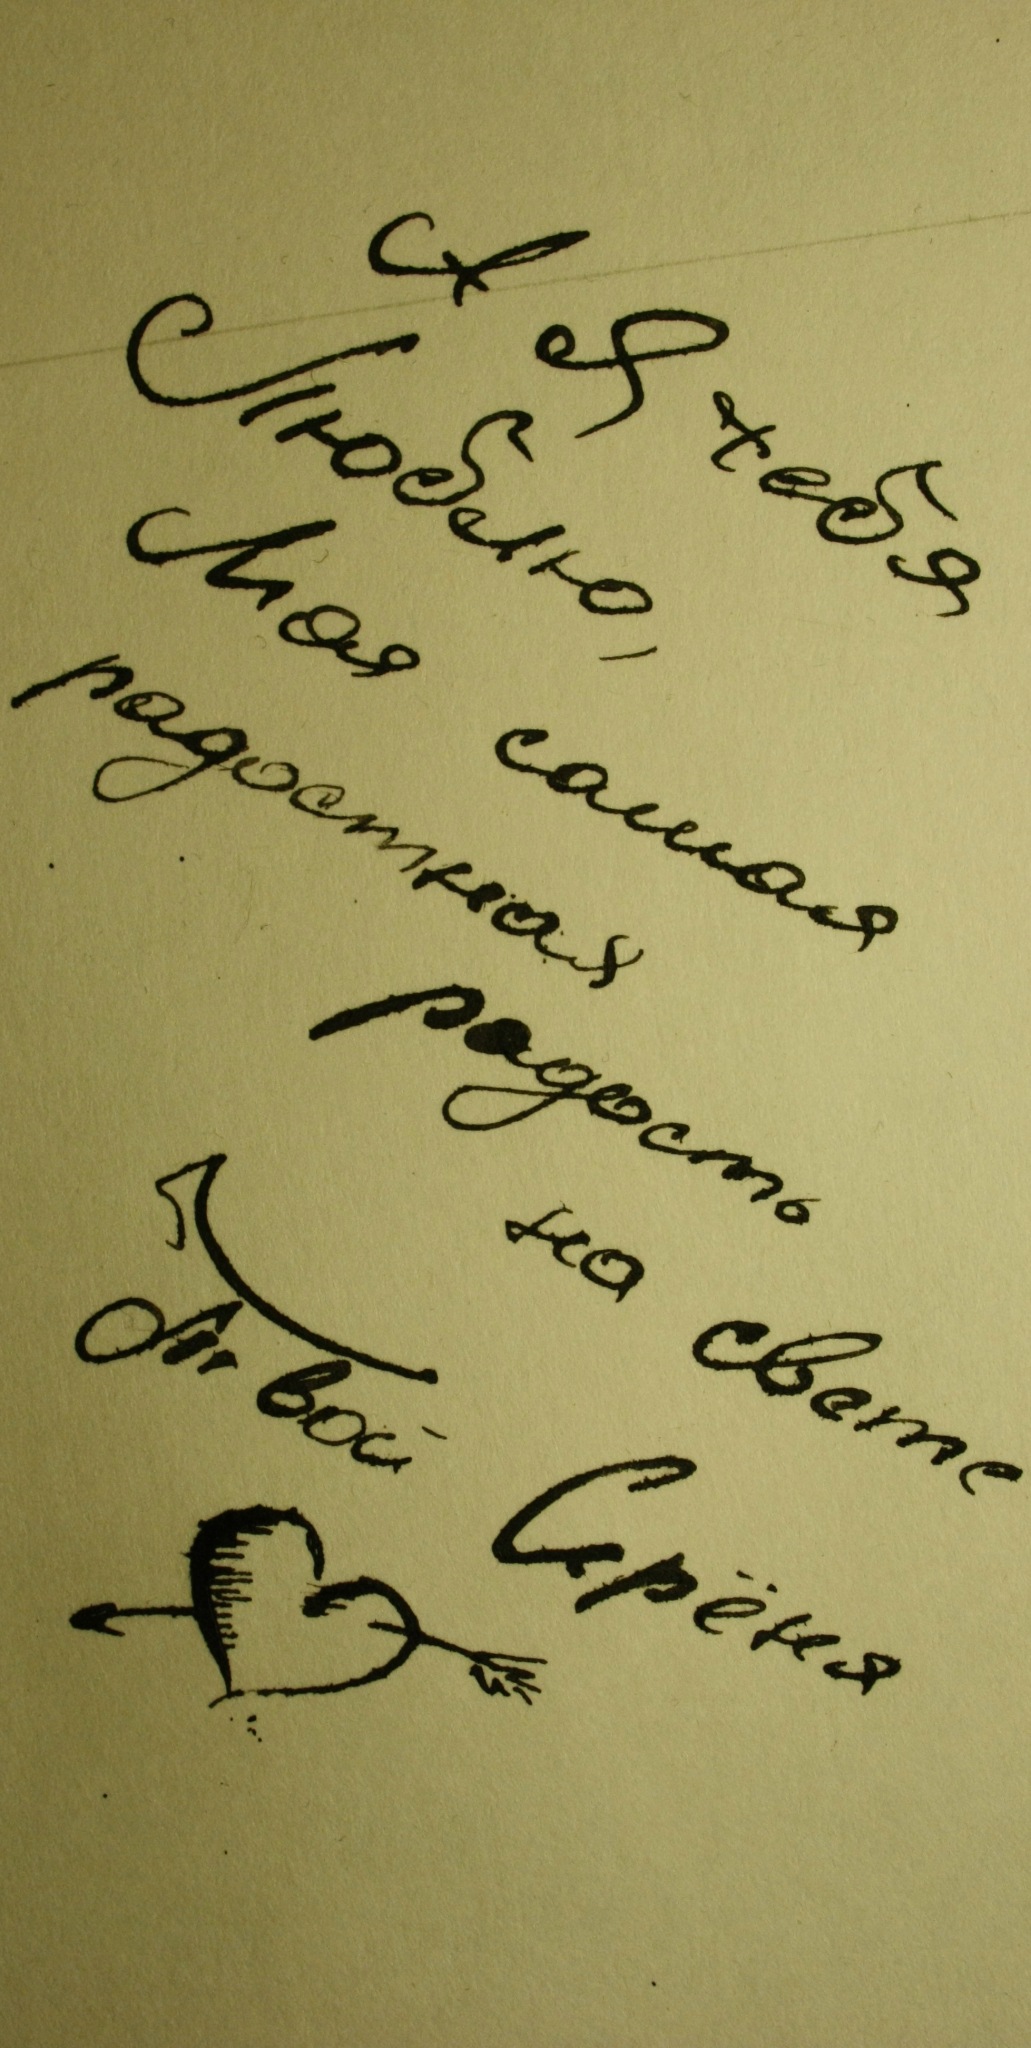 А Я тебя
Люблю,
Моя самая
радостная
радость
на свете
Твой Срёня